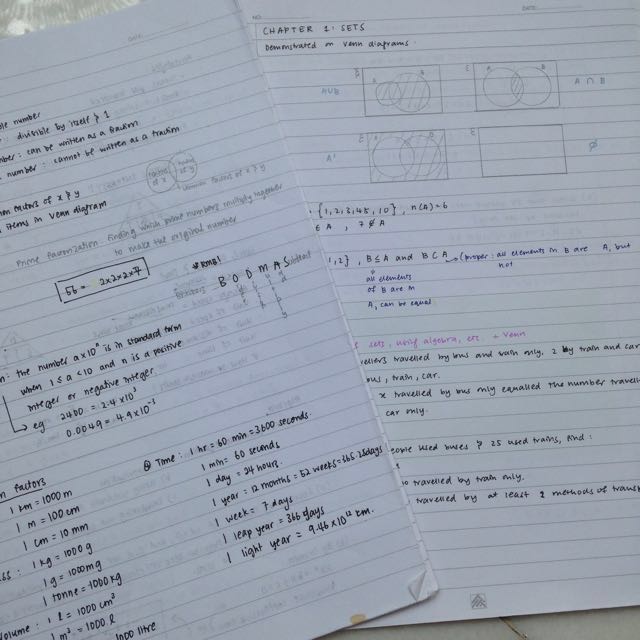 DATE:
ble number
: divisible by itself & 1
mber : can be written as a fraction
l number : cannot be written as a fraction
on factors of x & y
items in Venn diagram
factors of x
factors of y
common factors of x & y
Prime factorization: finding which prime numbers multiply together
to make the original number
56 = 2x2x2x7
*RMB!
BODMAS
Brackets
subtract
n : the number a x 10ⁿ is in standard form
when 1 ≤ a < 10 and n is a positive
integer or negative integer.
eg. 2400 = 2.4 x 10³
0.0049 = 4.9 x 10⁻³
n factors
1 km = 1000 m
1 m = 100 cm
1 cm = 10 mm
ss : 1 kg = 1000 g
1 g = 1000 mg
1 tonne = 1000 kg
Volume : 1 l = 1000 cm³
1 m³ = 1000 l
1000 litre
Time : 1 hr = 60 min = 3600 seconds.
1 min = 60 seconds
1 day = 24 hours.
1 year = 12 months = 52 weeks = 365.25 days
1 week = 7 days
1 leap year = 366 days
1 light year = 9.46 x 10¹² km.
NO.
DATE:
CHAPTER 1: SETS
Demonstrated on Venn diagrams.
A∪B
A ∩ B
A'
∅
{1,2,3,4,5,10}, n(A)=6
∈ A, 7 ∉ A
1,2}, B ⊆ A and B ⊂ A
(proper: all elements in B are A, but
not
all elements
of B are in
A, can be equal
sets, using algebra, etc + Venn
ellers travelled by bus and train only, 2 by train and car
bus, train, car.
x travelled by bus only equalled the number travell
car only.
eople used buses & 25 used trains, find:
o travelled by train only.
travelled by at least 2 methods of transp